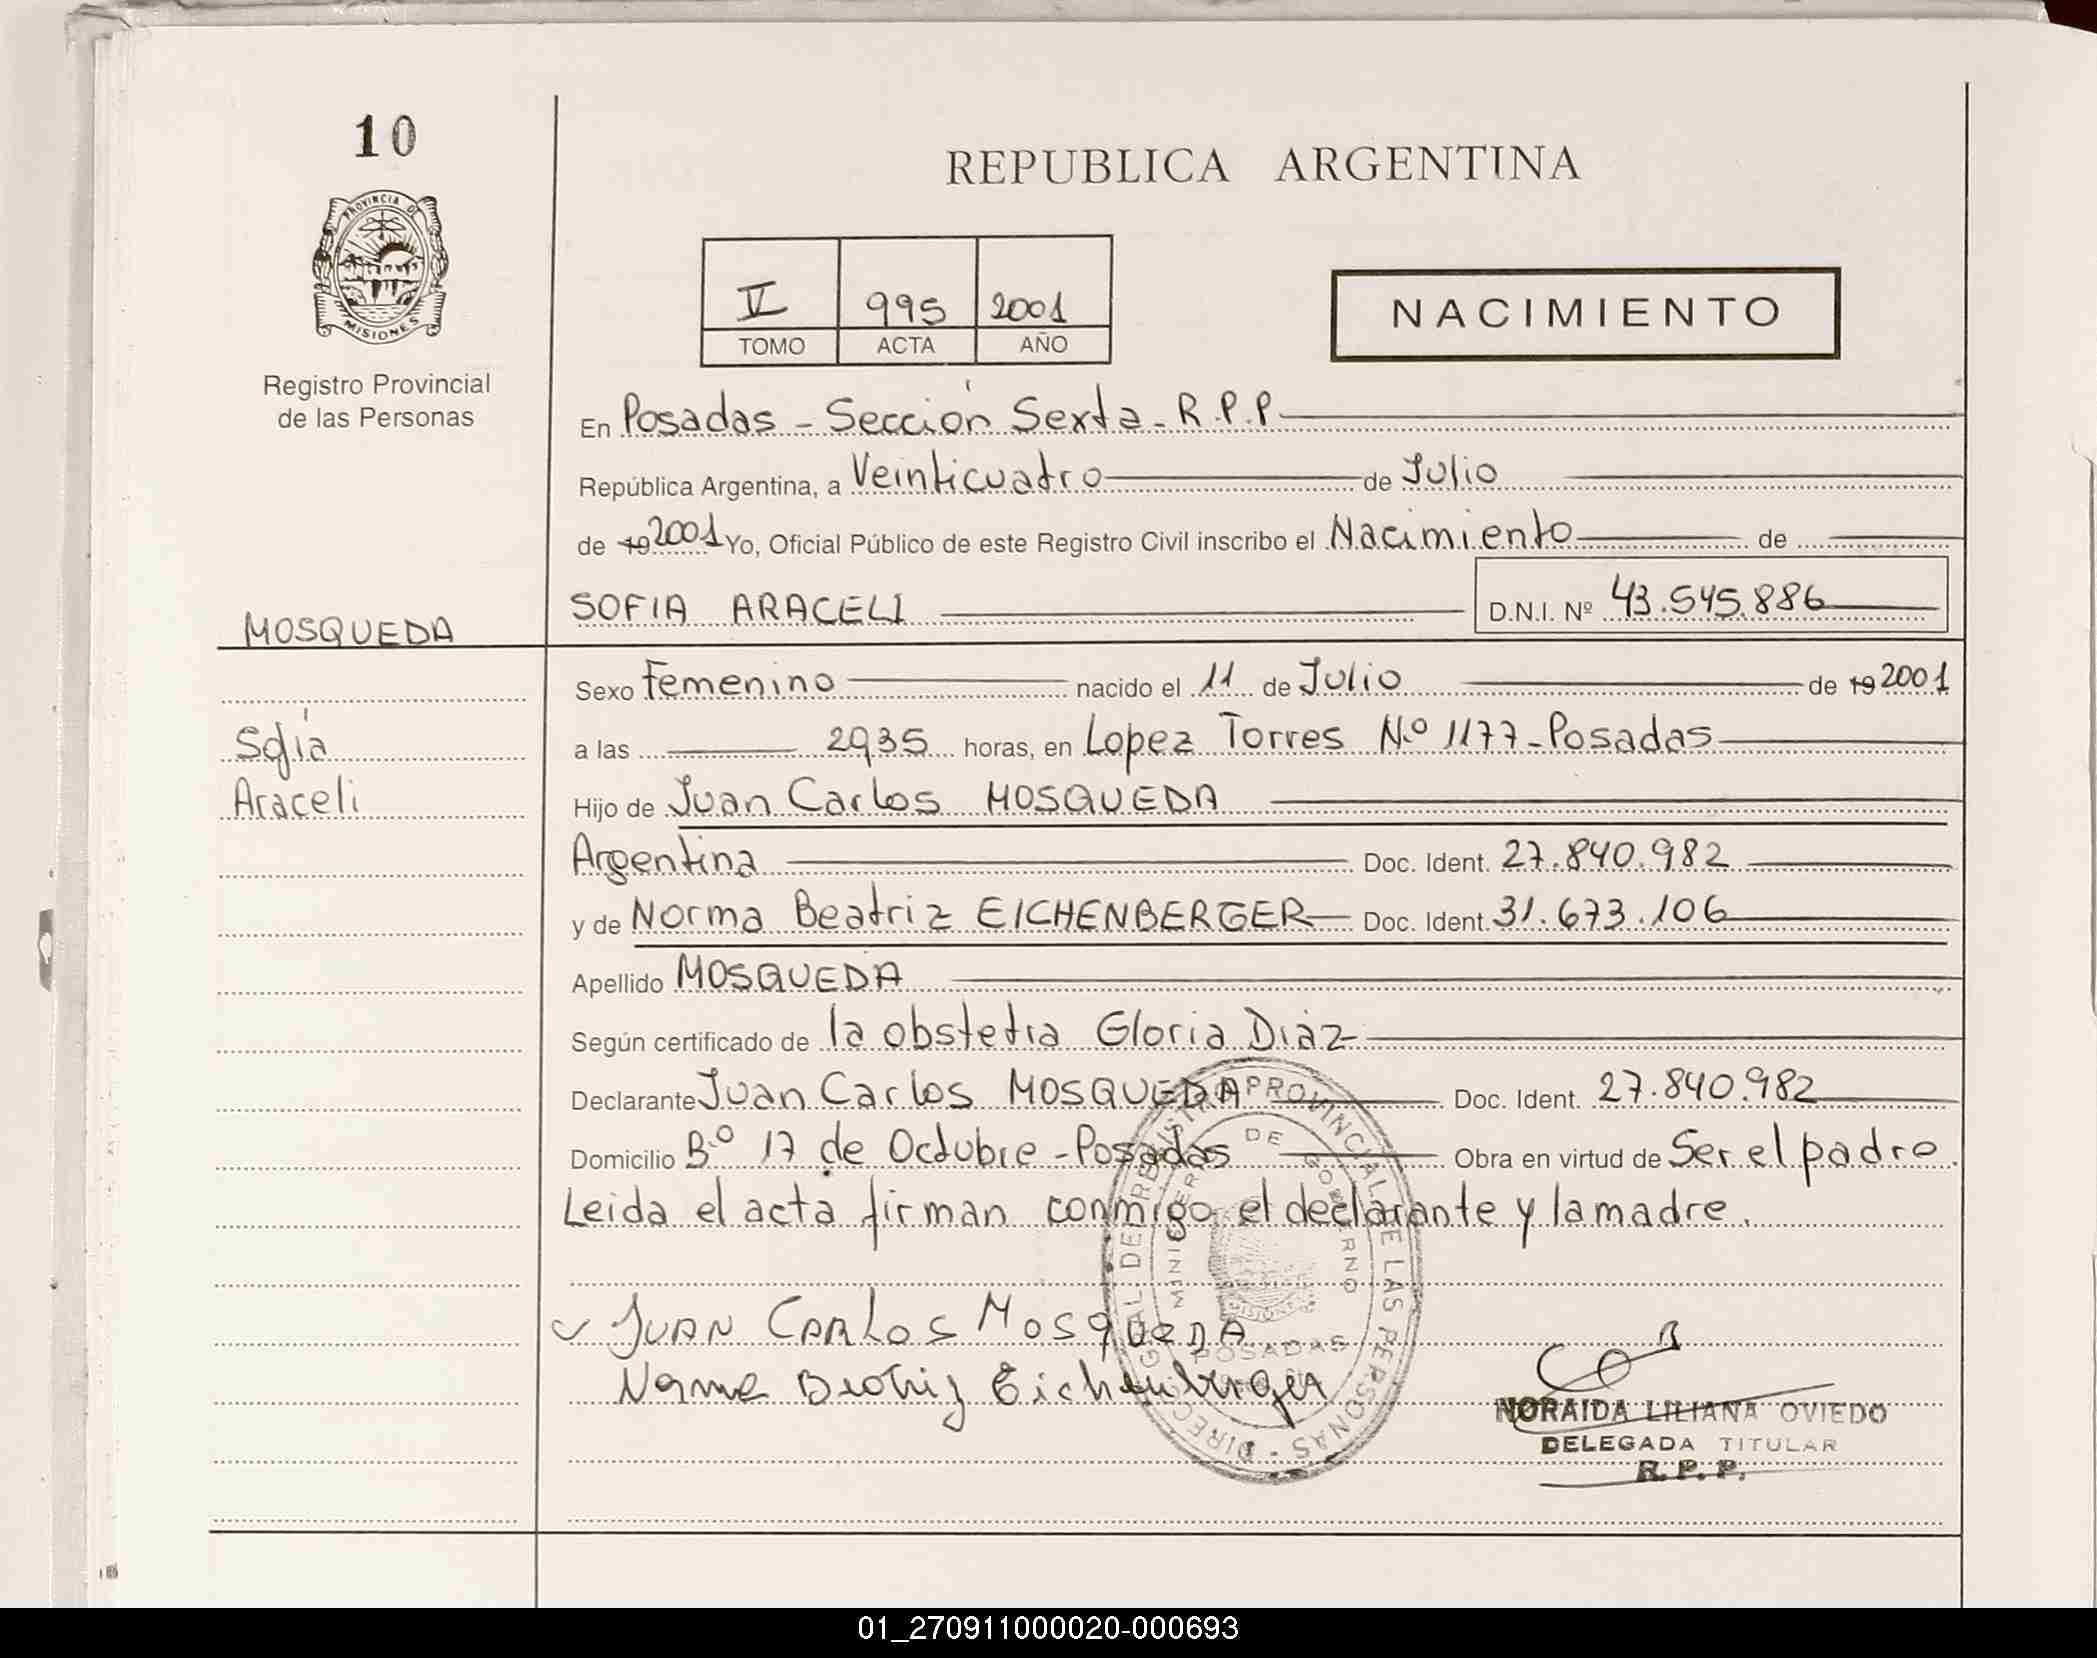 10
REPUBLICA ARGENTINA
PROVINCIA DE
MISIONES
Registro Provincial
de las Personas
V 995 2001
TOMO ACTA AÑO
NACIMIENTO
En Posadas - Sección Sexta - R.P.P
República Argentina, a Veinticuatro de Julio
de 19 2001 Yo, Oficial Público de este Registro Civil inscribo el Nacimiento de
SOFIA ARACELI D.N.I. Nº 43.545.886
MOSQUEDA
Sofía
Araceli
Sexo Femenino nacido el 11 de Julio de 19 2001
a las 2935 horas, en Lopez Torres Nº 1177 - Posadas
Hijo de Juan Carlos MOSQUEDA
Argentina Doc. Ident. 27.840.982
y de Norma Beatriz EICHENBERGER Doc. Ident. 31.673.106
Apellido MOSQUEDA
Según certificado de la obstetra Gloria Diaz
Declarante Juan Carlos MOSQUEDA Doc. Ident. 27.840.982
Domicilio Bº 17 de Octubre - Posadas Obra en virtud de Ser el padre.
Leida el acta firman conmigo el declarante y la madre.
JUAN CARLOS MOSQUEDA
Norma Beatriz Eichenberger
DIRECC GRAL DE REGISTRO PROVINCIAL DE LAS PERSONAS
MINISTERIO DE GOBIERNO
MISIONES
POSADAS
NORAIDA LILIANA OVIEDO
DELEGADA TITULAR
R. P. P.
01_270911000020-000693